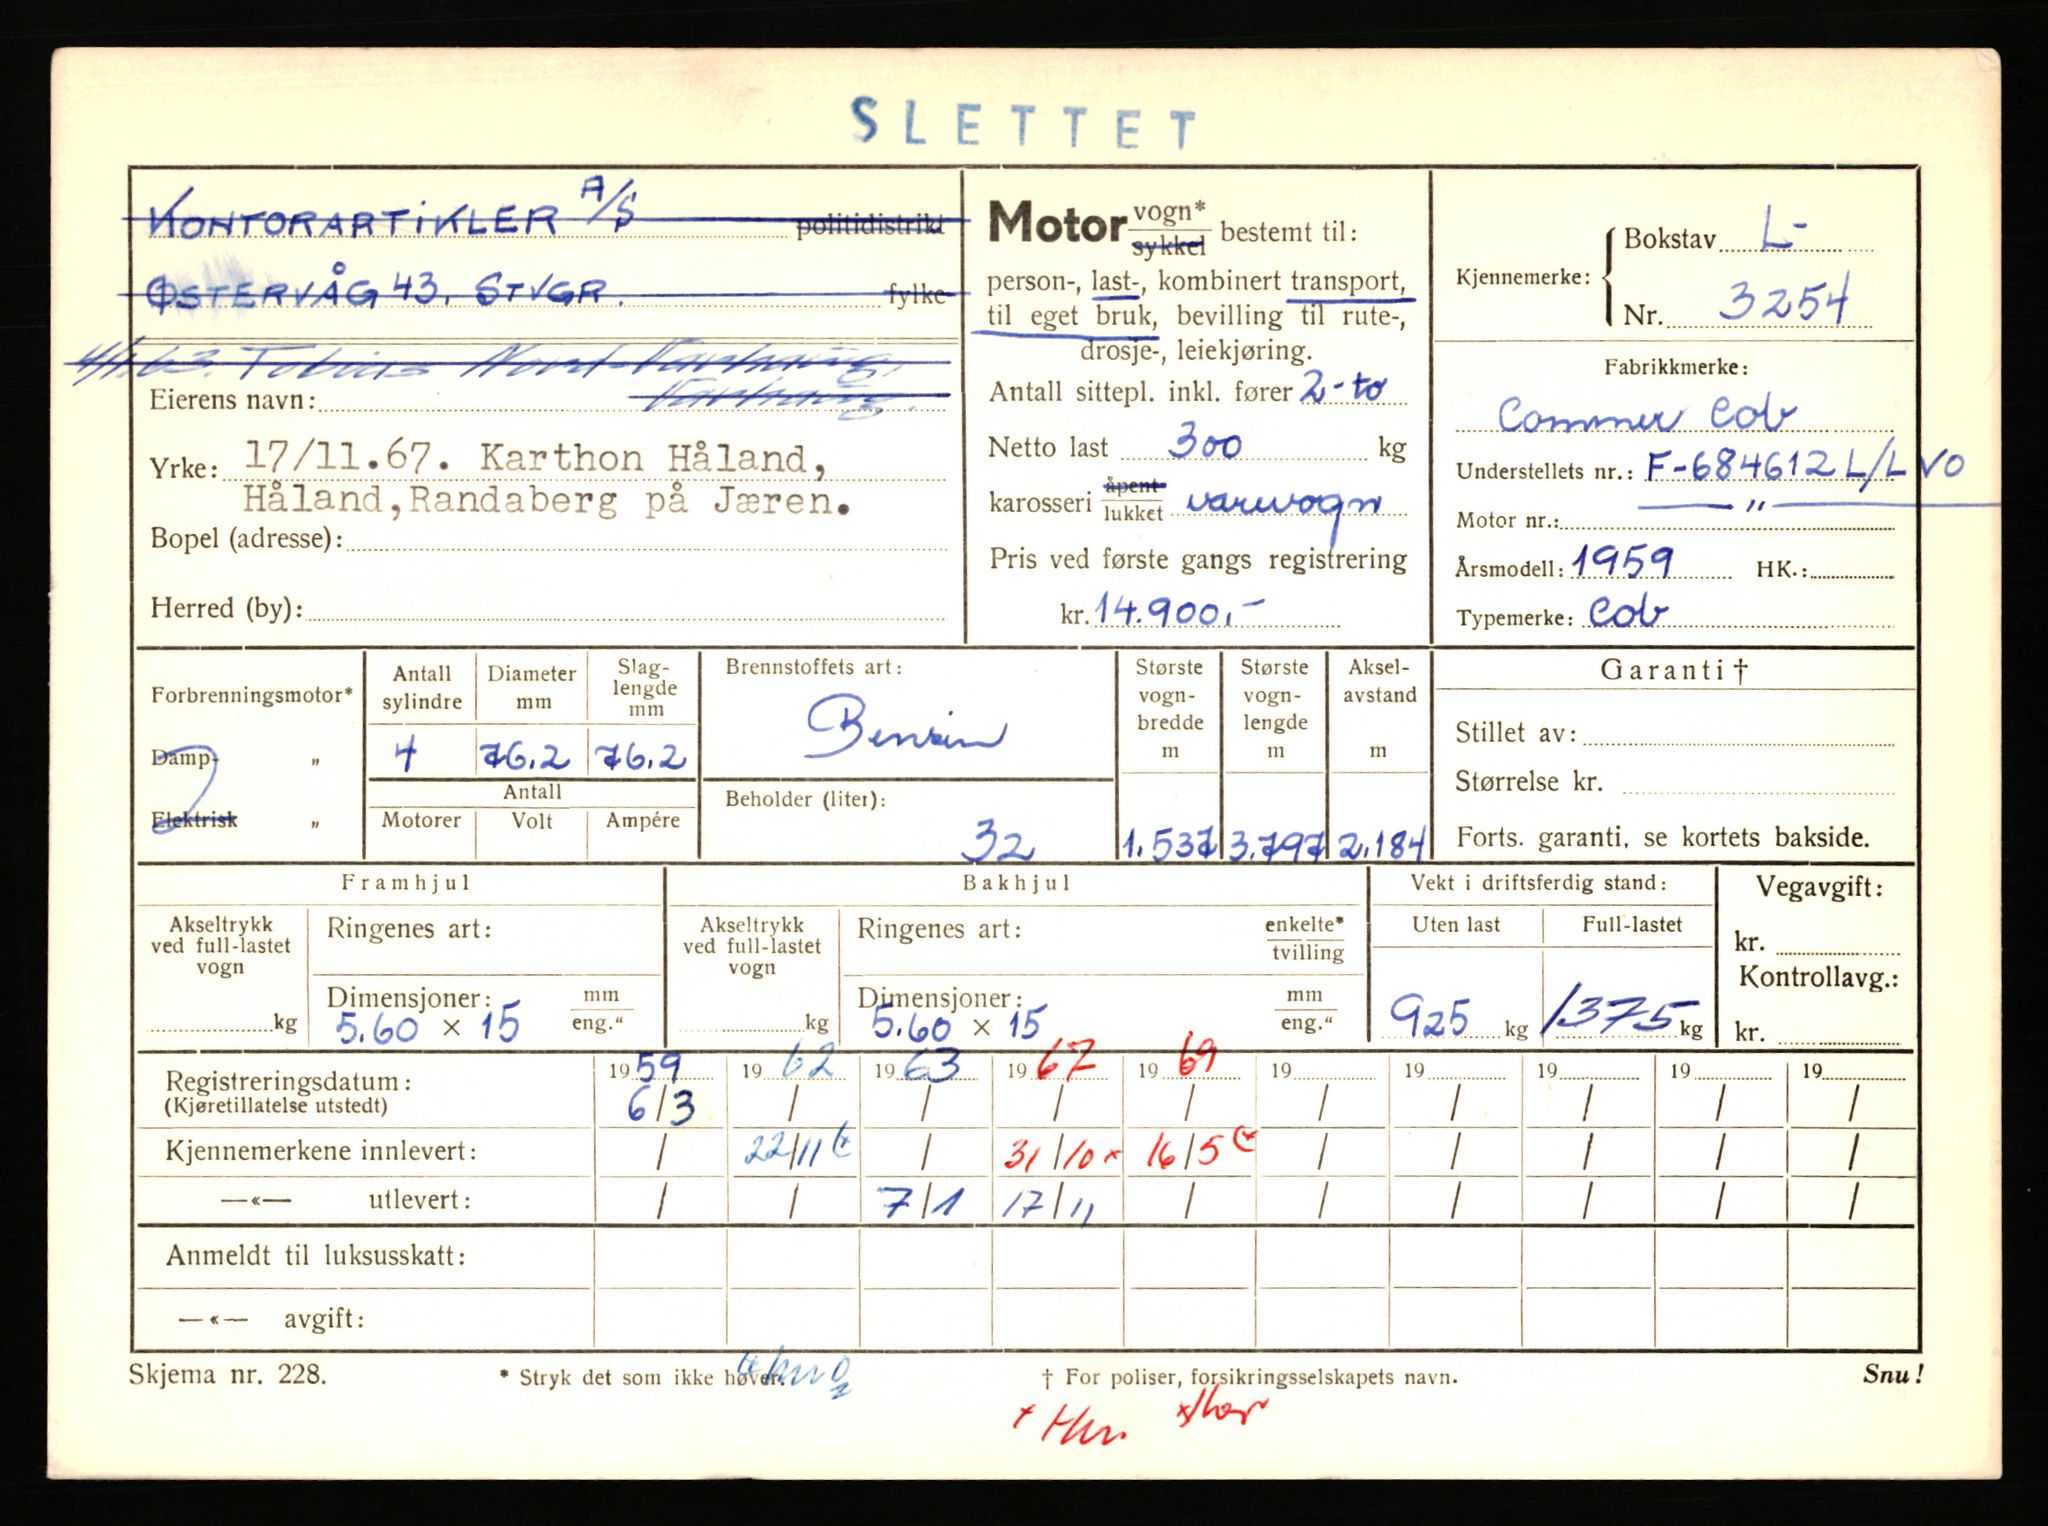 SLETTET
KONTORARTIKLER A/S politidistrikt
ØSTERVÅG 43, STVGR. fylke
Tobias
Eierens navn:
Yrke: 17/11.67. Karthon Håland,
Håland, Randaberg på Jæren.
Bopel (adresse):
Herred (by):
Motor vogn* sykkel bestemt til:
person-, last-, kombinert transport,
til eget bruk, bevilling til rute-,
drosje-, leiekjøring.
Antall sittepl. inkl. fører 2-to
Netto last 300 kg
karosseri åpent lukket varevogn
Pris ved første gangs registrering
kr. 14.900,-
Kjennemerke: Bokstav L-
Nr. 3254
Fabrikkmerke:
Commer Cob
Understellets nr.: F-684612 L/LVO
Motor nr.: — " —
Årsmodell: 1959 HK.:
Typemerke: Cob
Forbrenningsmotor*
Damp- "
Elektrisk "
Antall sylindre Diameter mm Slag-lengde mm
4 76.2 76.2
Antall
Motorer Volt Ampére
Brennstoffets art:
Bensin
Beholder (liter):
32
Største vogn-bredde m Største vogn-lengde m Aksel-avstand m
1.537 3.797 2.184
Garanti †
Stillet av:
Størrelse kr.
Forts. garanti, se kortets bakside.
Framhjul
Akseltrykk ved full-lastet vogn
kg
Ringenes art:
Dimensjoner: mm eng."
5.60 × 15
Bakhjul
Akseltrykk ved full-lastet vogn
kg
Ringenes art: enkelte* tvilling
Dimensjoner: mm eng."
5.60 × 15
Vekt i driftsferdig stand:
Uten last Full-lastet
925 kg 1375 kg
Vegavgift:
kr.
Kontrollavg.:
kr.
Registreringsdatum: 1959 1962 1963 1967 1969 19 19 19 19 19
(Kjøretillatelse utstedt) 6/3 / / / / / / / / /
Kjennemerkene innlevert: / 22/11 / 31/10 × 16/5 / / / / /
—«— utlevert: / / 7/1 17/11 / / / / / /
Anmeldt til luksusskatt:
—«— avgift:
Skjema nr. 228. * Stryk det som ikke høver. † For poliser, forsikringsselskapets navn. Snu!